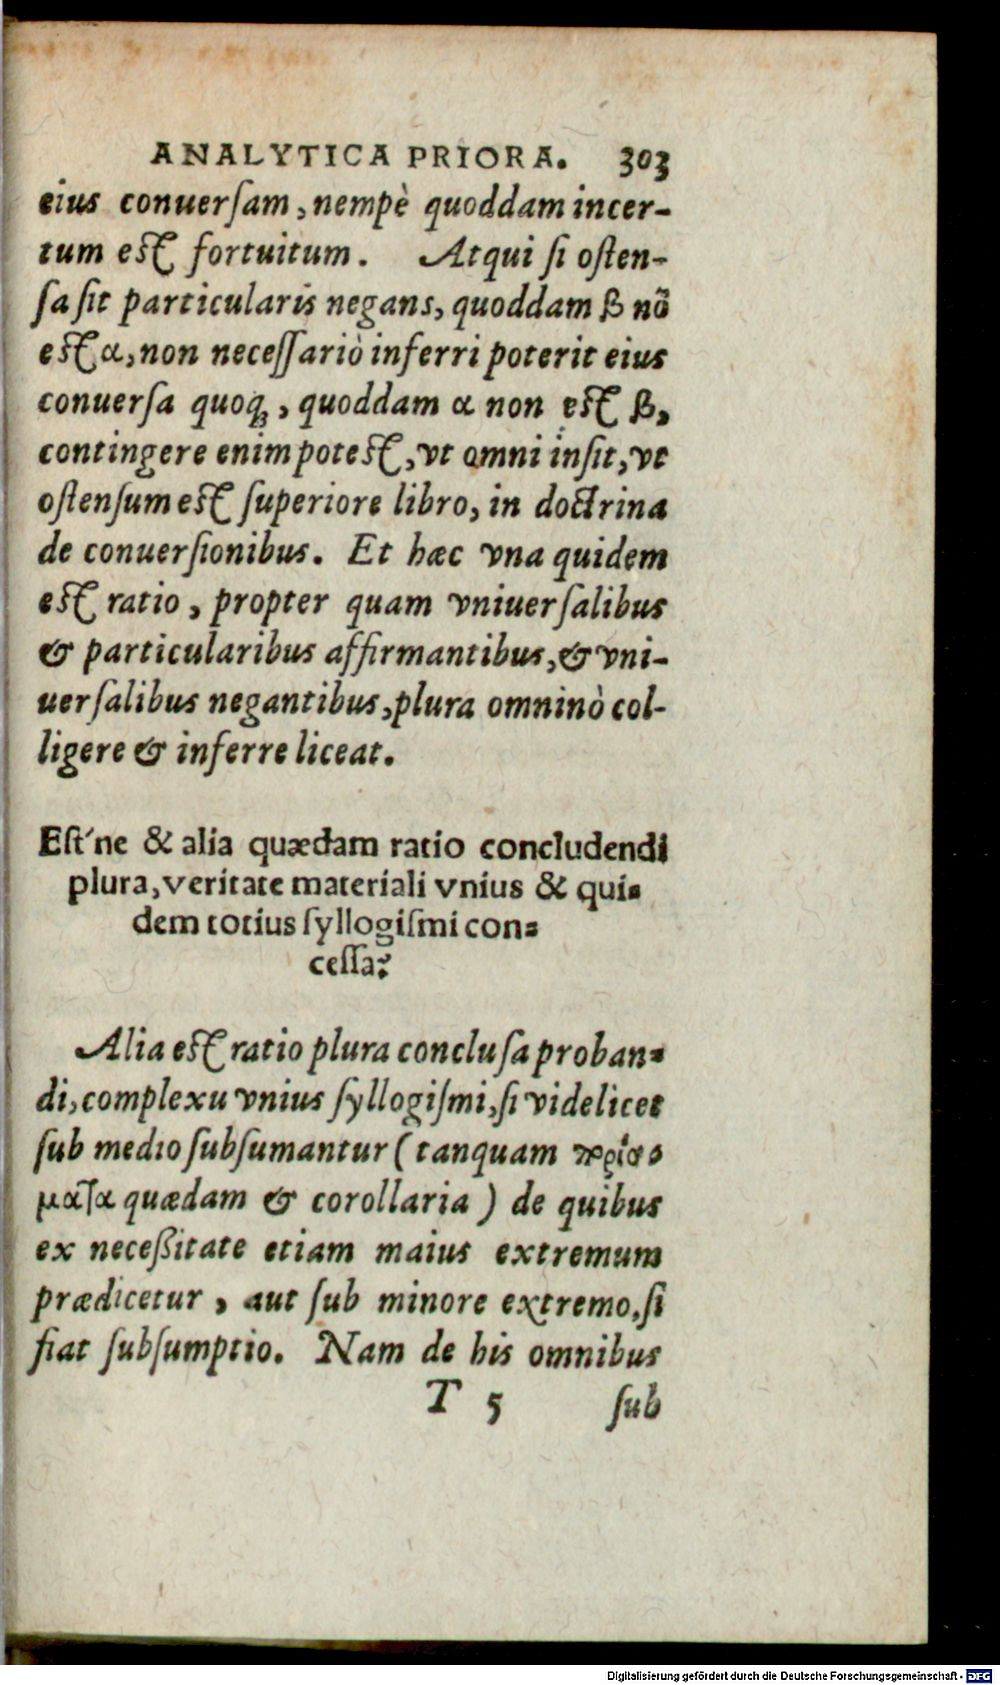 ANALYTICA PRIORA. 303
eius conuerſam, nempè quoddam incer-
tum eſt fortuitum. Atqui ſi oſten-
ſa ſit particularis negans, quoddam β nõ
eſt α, non neceſſariò inferri poterit eius
conuerſa quoq;, quoddam α non eſt β,
contingere enim poteſt, vt omni inſit, vt
oſtenſum eſt ſuperiore libro, in doctrina
de conuerſionibus. Et hæc vna quidem
eſt ratio, propter quam vniuerſalibus
& particularibus affirmantibus, & vni-
uerſalibus negantibus, plura omninò col-
ligere & inferre liceat.
Eſt'ne & alia quædam ratio concludendi
plura, veritate materiali vnius & qui-
dem totius ſyllogiſmi con-
ceſſa?
Alia eſt ratio plura concluſa proban-
di, complexu vnius ſyllogiſmi, ſi videlicet
ſub medio ſubſumantur (tanquam πορίσ-
ματα quædam & corollaria) de quibus
ex neceßitate etiam maius extremum
prædicetur, aut ſub minore extremo, ſi
fiat ſubſumptio. Nam de his omnibus
T 5 ſub
Digitalisierung gefördert durch die Deutsche Forschungsgemeinschaft - DFG